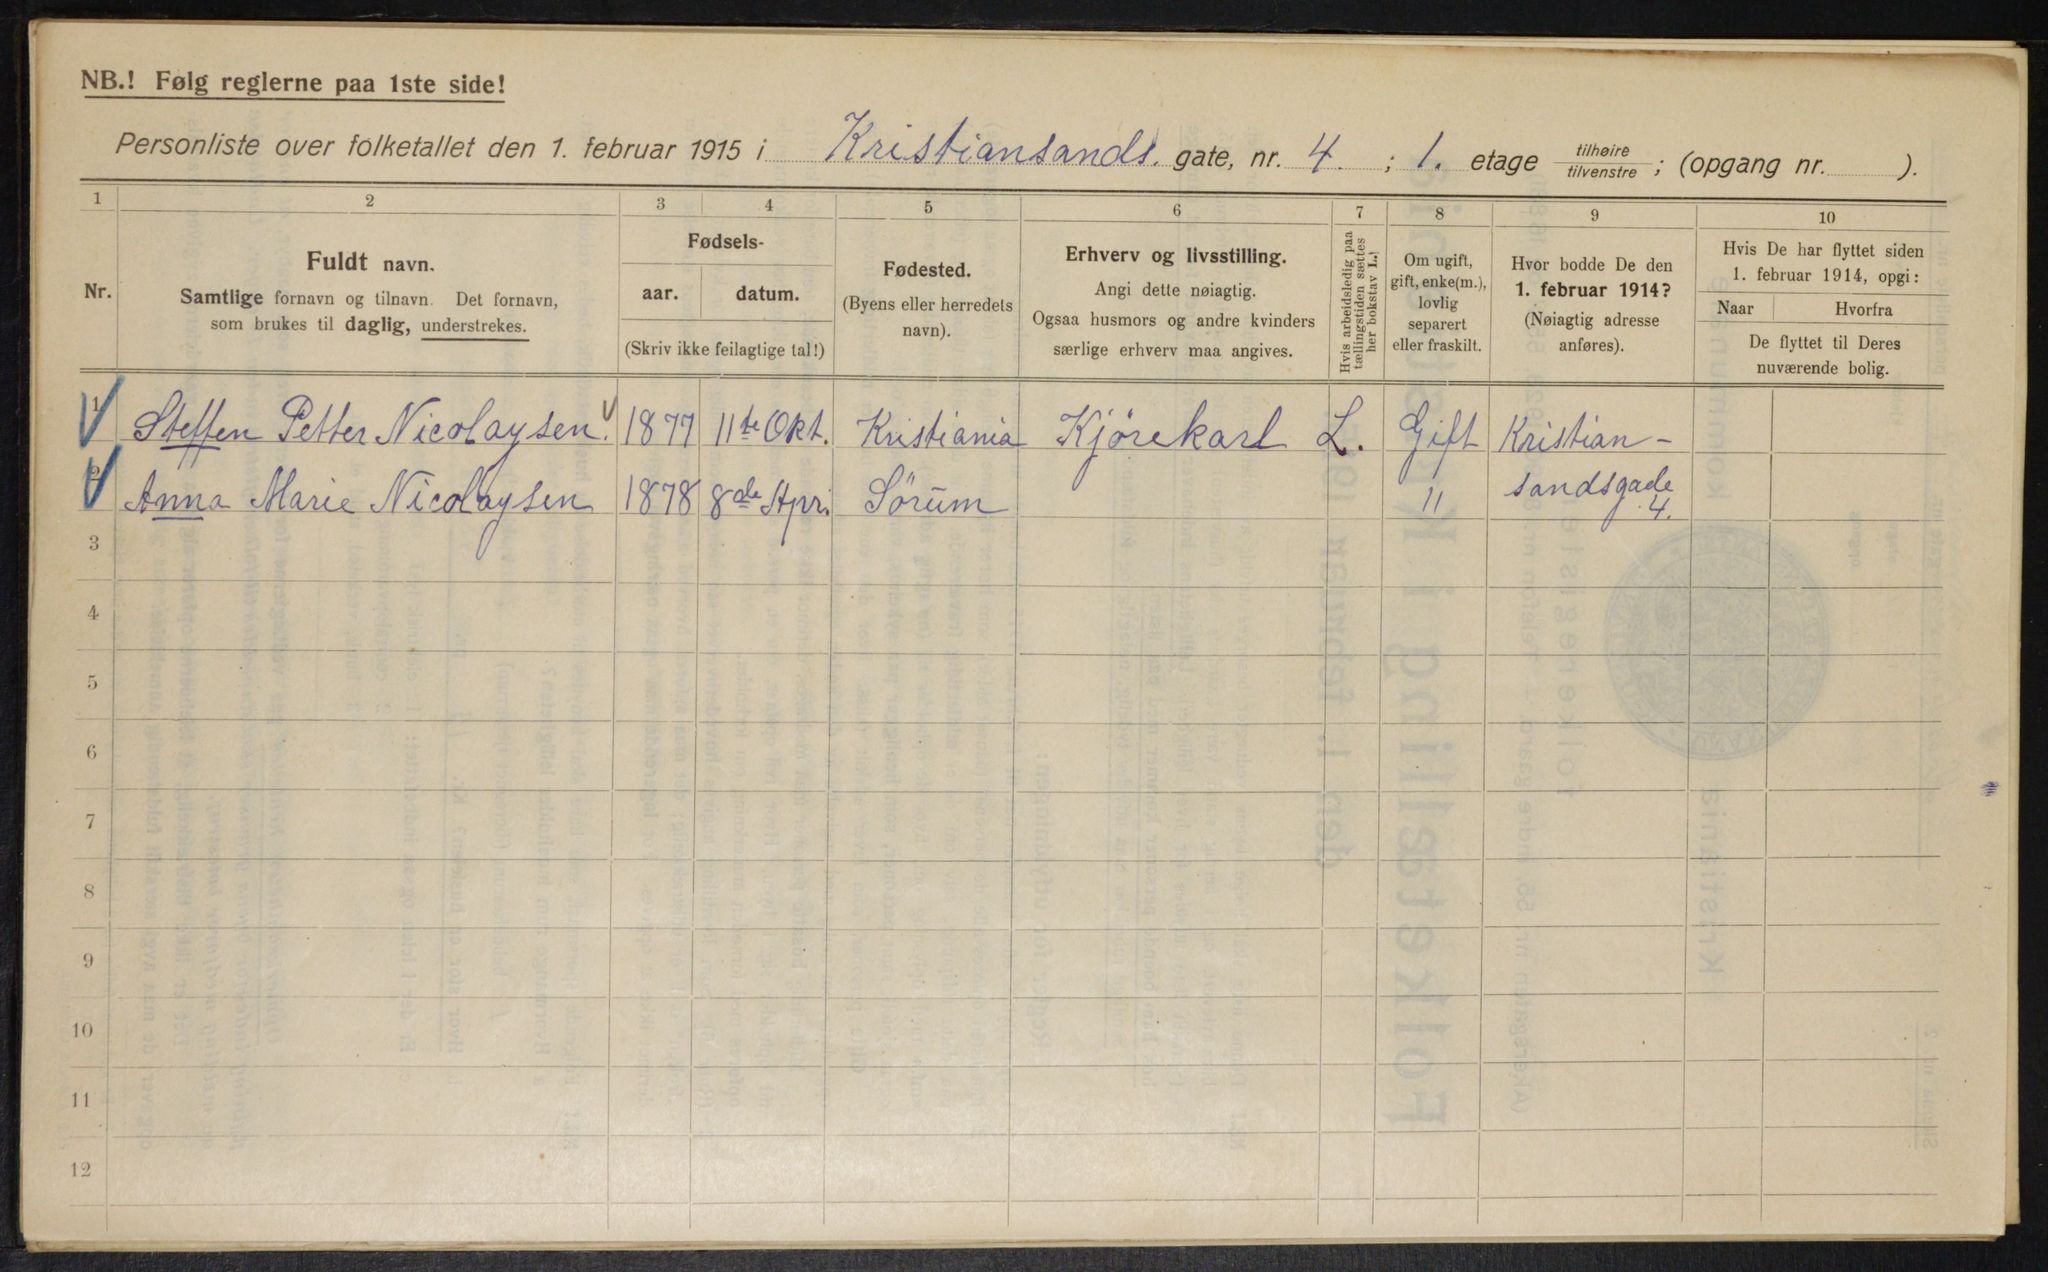 NB.! Følg reglerne paa 1ste side!
Personliste over folketallet den 1. februar 1915 i Kristiansands. gate, nr. 4. ; 1. etage tilhøire / tilvenstre ; (opgang nr. ).
1 2 3 4 5 6 7 8 9 10
Nr.
Fuldt navn.
Samtlige fornavn og tilnavn. Det fornavn,
som brukes til daglig, understrekes.
Fødsels-
aar. datum.
(Skriv ikke feilagtige tal!)
Fødested.
(Byens eller herredets
navn).
Erhverv og livsstilling.
Angi dette nøiagtig.
Ogsaa husmors og andre kvinders
særlige erhverv maa angives.
Hvis arbeidsledig paa
tællingstiden sættes
her bokstav L.
Om ugift,
gift, enke(m.),
lovlig
separert
eller fraskilt.
Hvor bodde De den
1. februar 1914?
(Nøiagtig adresse
anføres).
Hvis De har flyttet siden
1. februar 1914, opgi:
Naar Hvorfra
De flyttet til Deres
nuværende bolig.
1 Steffen Petter Nicolaysen. 1877 11te Okt. Kristiania Kjørekarl L. Gift Kristian-
2 Anna Marie Nicolaysen 1878 8de Apri. Sørum 11 sandsgade
4.
3
4
5
6
7
8
9
10
11
12